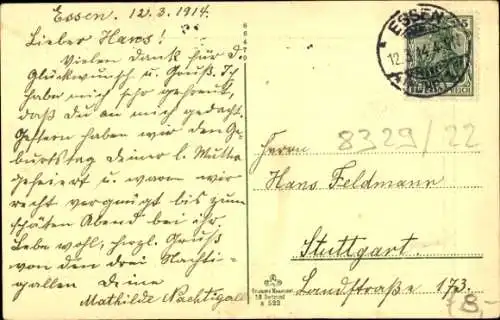 Essen. 12.3.1914.
Lieber Hans!
Vielen Dank für d.
Glückwunsch u. Gruß. Ich
habe mich sehr gefreut,
daß Du an mich gedacht.
Gestern haben wir den Ge-
burtstag deiner l. Mutter
gefeiert u. waren wir
recht vergnügt bis zum
späten Abend bei ihr.
Lebe wohl, herzl. Gruß
von den drei Nachti-
gallen Deine
Mathilde Nachtigall
66470
ESSEN
12.3.14.4-5
DEUTSCHES REICH
8329/22
Herrn
Hans Feldmann
Stuttgart.
Landstraße 173.
8,-